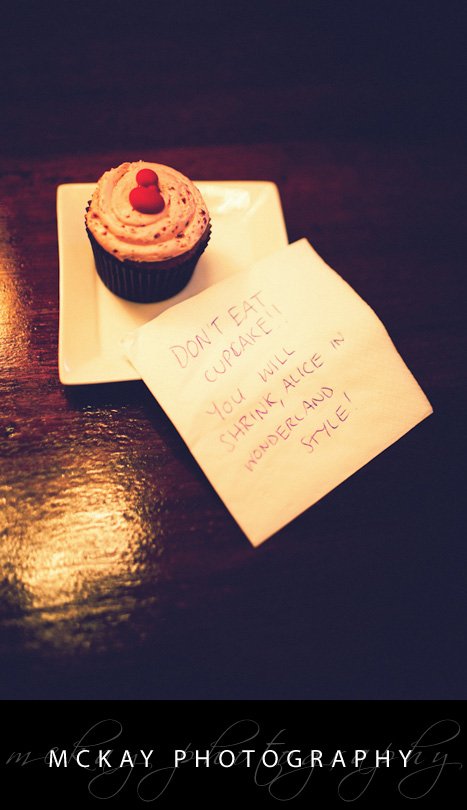 DON'T EAT
CUPCAKE!!
YOU WILL
SHRINK, ALICE IN
WONDERLAND
STYLE!
mckay photography
MCKAY PHOTOGRAPHY